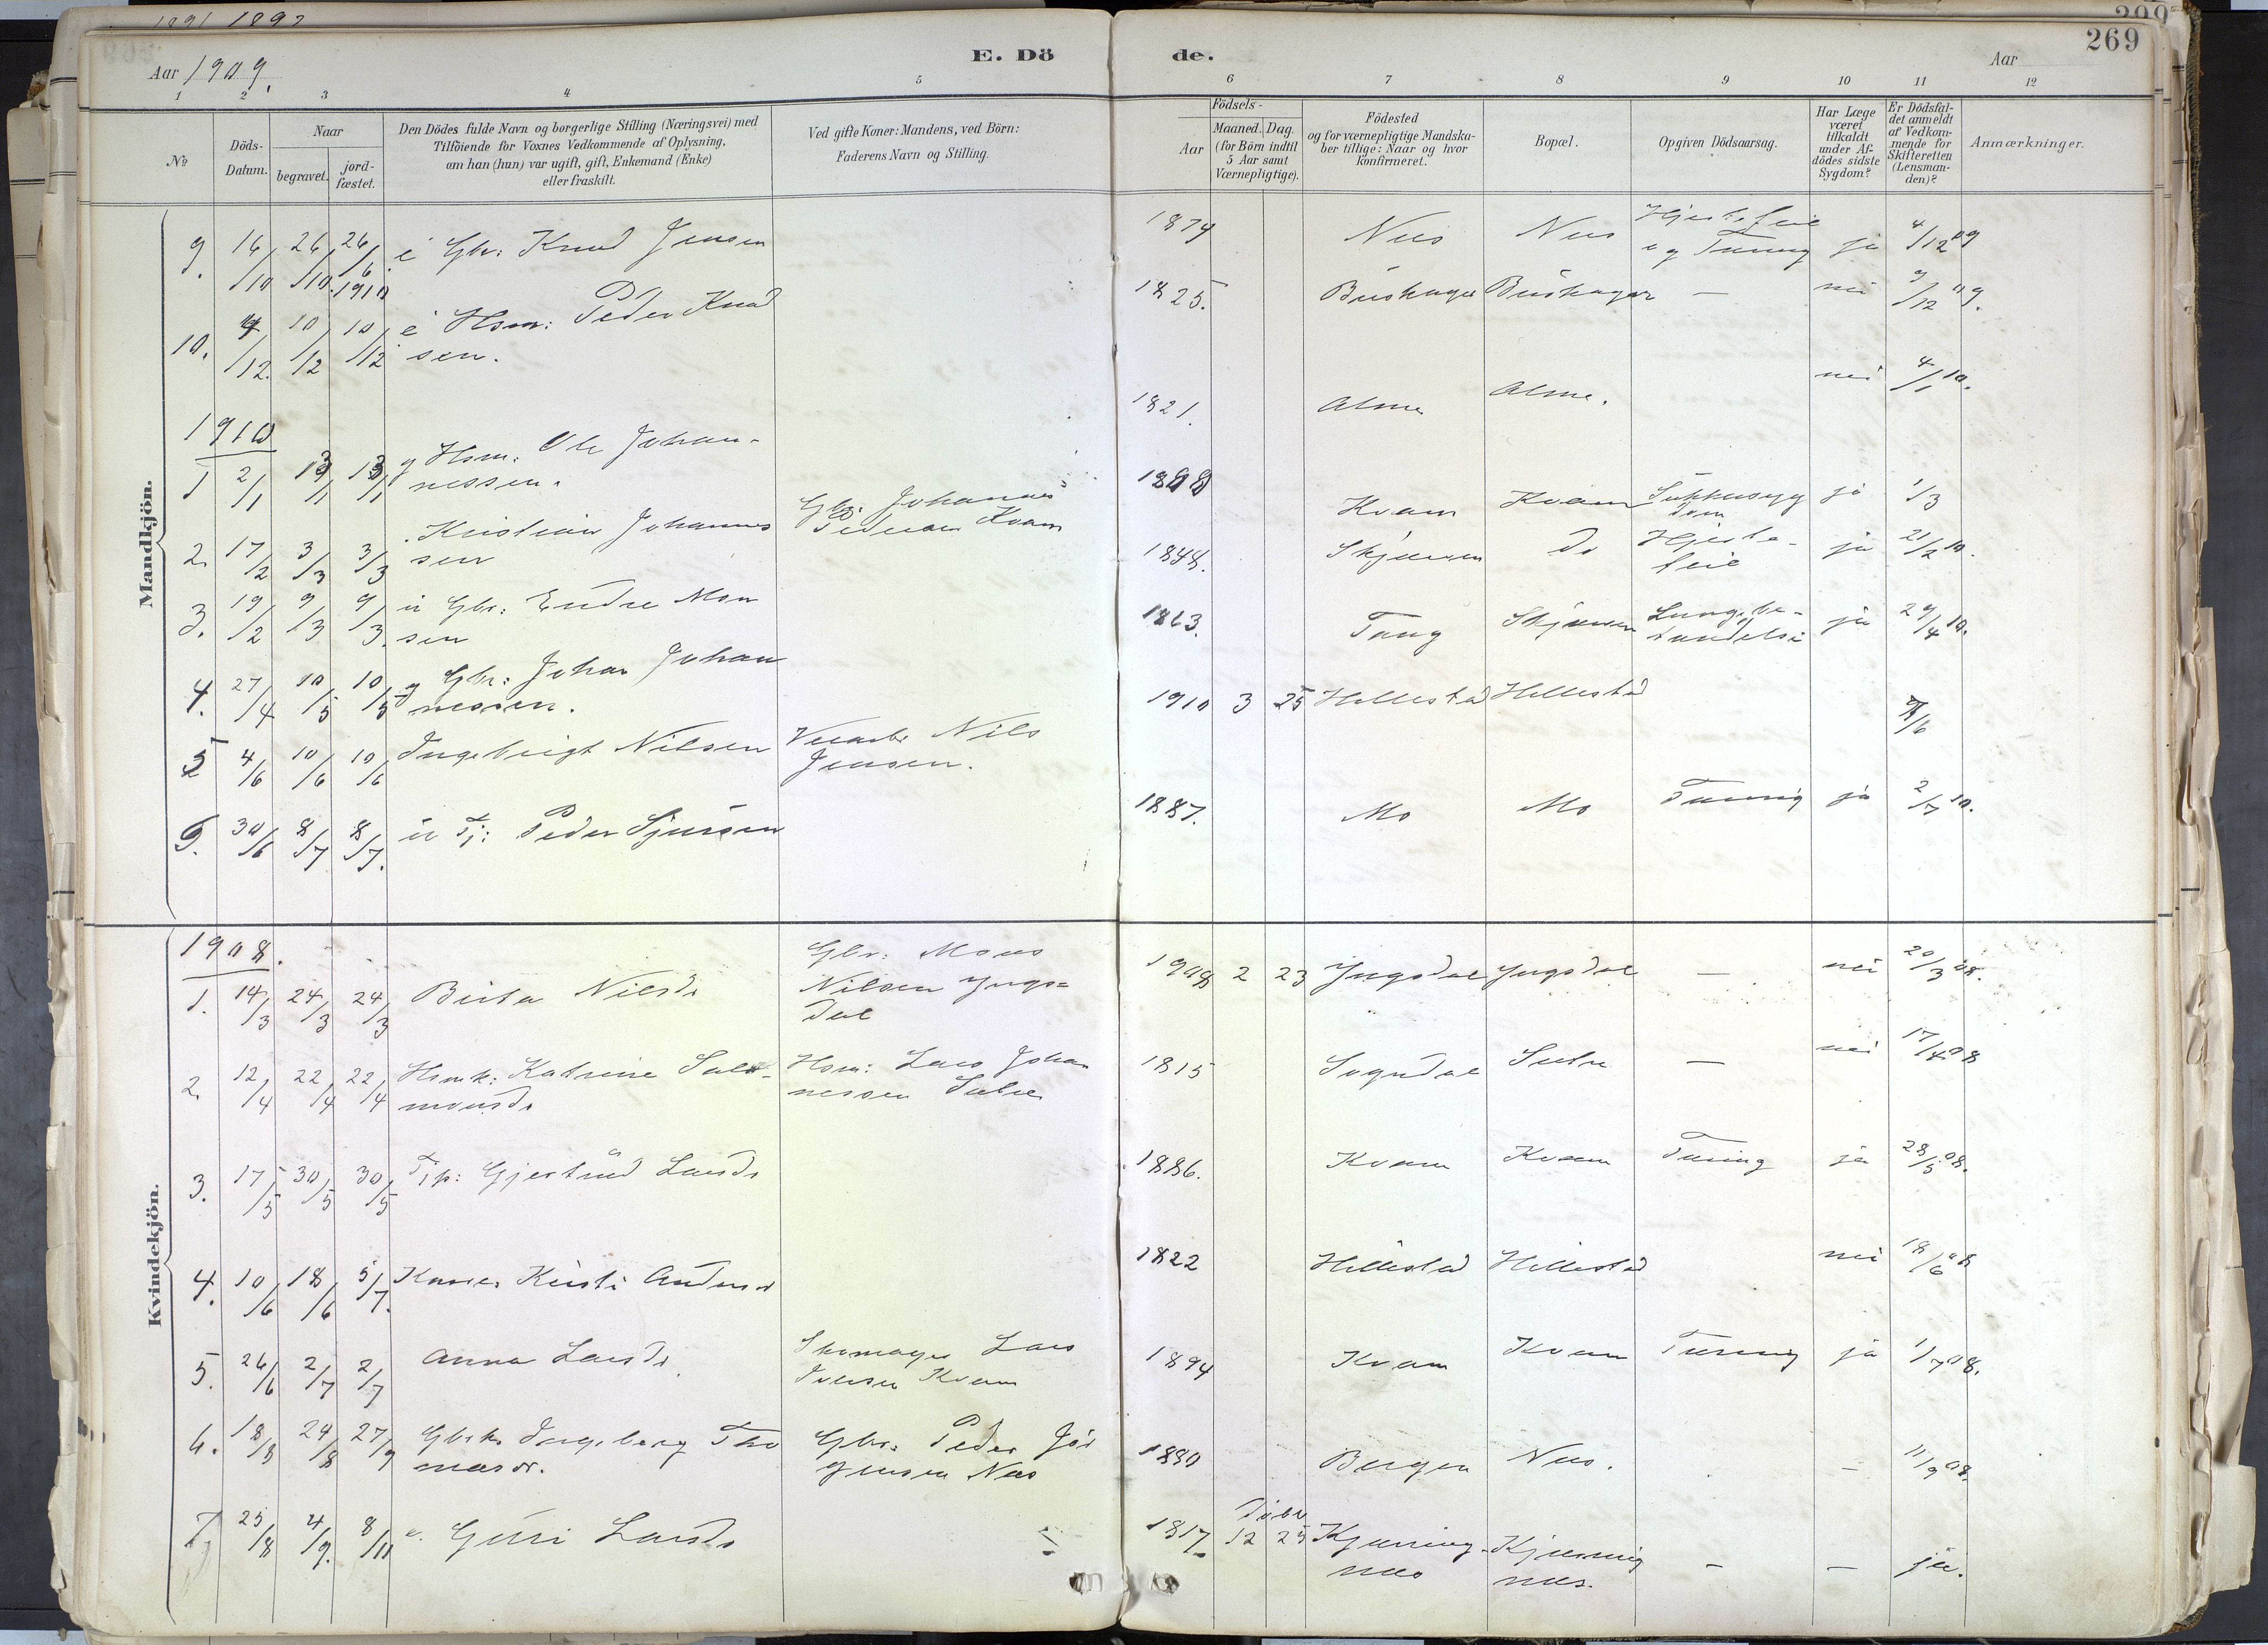 1891 1892
299
269
Aar 1909.
E. Dö
de.
Aar
1 2 3 4 5 6 7 8 9 10 11 12
No
Döds-
Datum.
Naar
begravet.
jord-
fæstet.
Den Dödes fulde Navn og borgerlige Stilling (Næringsvei) med
Tilföiende for Voxnes Vedkommende af Oplysning,
om han (hun) var ugift, gift, Enkemand (Enke)
eller fraskilt.
Ved gifte Koner: Mandens, ved Börn:
Faderens Navn og Stilling.
Födsels-
Aar
Maaned. Dag.
(for Börn indtil
5 Aar samt
Værnepligtige).
Födested
og for værnepligtige Mandska-
ber tillige: Naar og hvor
konfirmeret.
Bopæl.
Opgiven Dödsaarsag.
Har Læge
været
tilkaldt
under Af-
dödes sidste
Sygdom?
Er Dödsfal-
det anmeldt
af Vedkom-
mende for
Skifteretten
(Lensman-
den)?
Anmærkninger.
Mandkjön.
9. 16/10 26/10 26/6 1910. e Gbr: Knud Jensen 1874 Nes Nes Hjertefeil
og Tæring ja 4/12 09
10. 4/12. 10/12 10/12 e Hsm: Peder Knud
sen. 1825. Büshagen Büshagen — nei 9/12 09.
1910
1 2/1 13/1 13/1 g Hsm: Ole Johan-
nessen. 1821. Alme Alme. nei 4/1 10.
2. 17/2 3/3 3/3 Kristian Johannes
sen Gbr: Johannes
Pedersen Kvam Kvam Kvam Sukkersyg
dom ja 1/3
3. 19/2 9/3 9/3 u Gbr: Endre Mon
sen 1844. Skjerven do Hjerte-
feil ja 21/2 10.
4. 27/4 10/5 10/5 g Gbr: Johan Johan
nessen. 1863. Tang Skjerven Lungebe-
tændelse ja 29/4 10.
5 4/6 10/6 10/6 Ingebrigt Nilsen Nils
Jensen. 1910 3 25 Hellestad Hellestad 7/6
6. 30/6 8/7 8/7. u Tj: Peder Sjursen 1887. Mo Mo Tæring ja 2/7 10.
Kvindekjön.
1908.
1. 14/3 24/3 24/3 Birta Nilsdr Gbr: Mons
Nilsen Yngs=
dal 1908 2 23 Yngsdal Yngsdal — nei 20/3 08.
2. 12/4 22/4 22/4 Hsmk: Katrine Salo-
monsdr Hsm: Lars Johan
nessen Sætre 1815 Sogndal Sætre — nei 17/4 08
3. 17/5 30/5 30/5 Tjp: Gjertrud Larsdr 1886. Kvam Kvam Tæring ja 28/5 08.
4. 10/6 18/6 5/7. Kristi Andersd 1822 Hillestad Hillestad nei 18/6 08
5. 26/6 2/7 2/7 Anna Larsdr. Skomager Lars
Iversen Kvam 1894 Kvam Kvam Tæring ja 1/7 08.
6. 18/8 24/8 27/9 Gbrk. Ingeborg Tho
masdr. Gbr: Peder Jör
gensen Nes 1880 Bergen Nes. — 11/9 08.
7. 25/8 4/9. 8/11 e. Guri Larsdr 1817 döbt
12 25 Kjerring-
nes Kjerring
nes. — — ja.